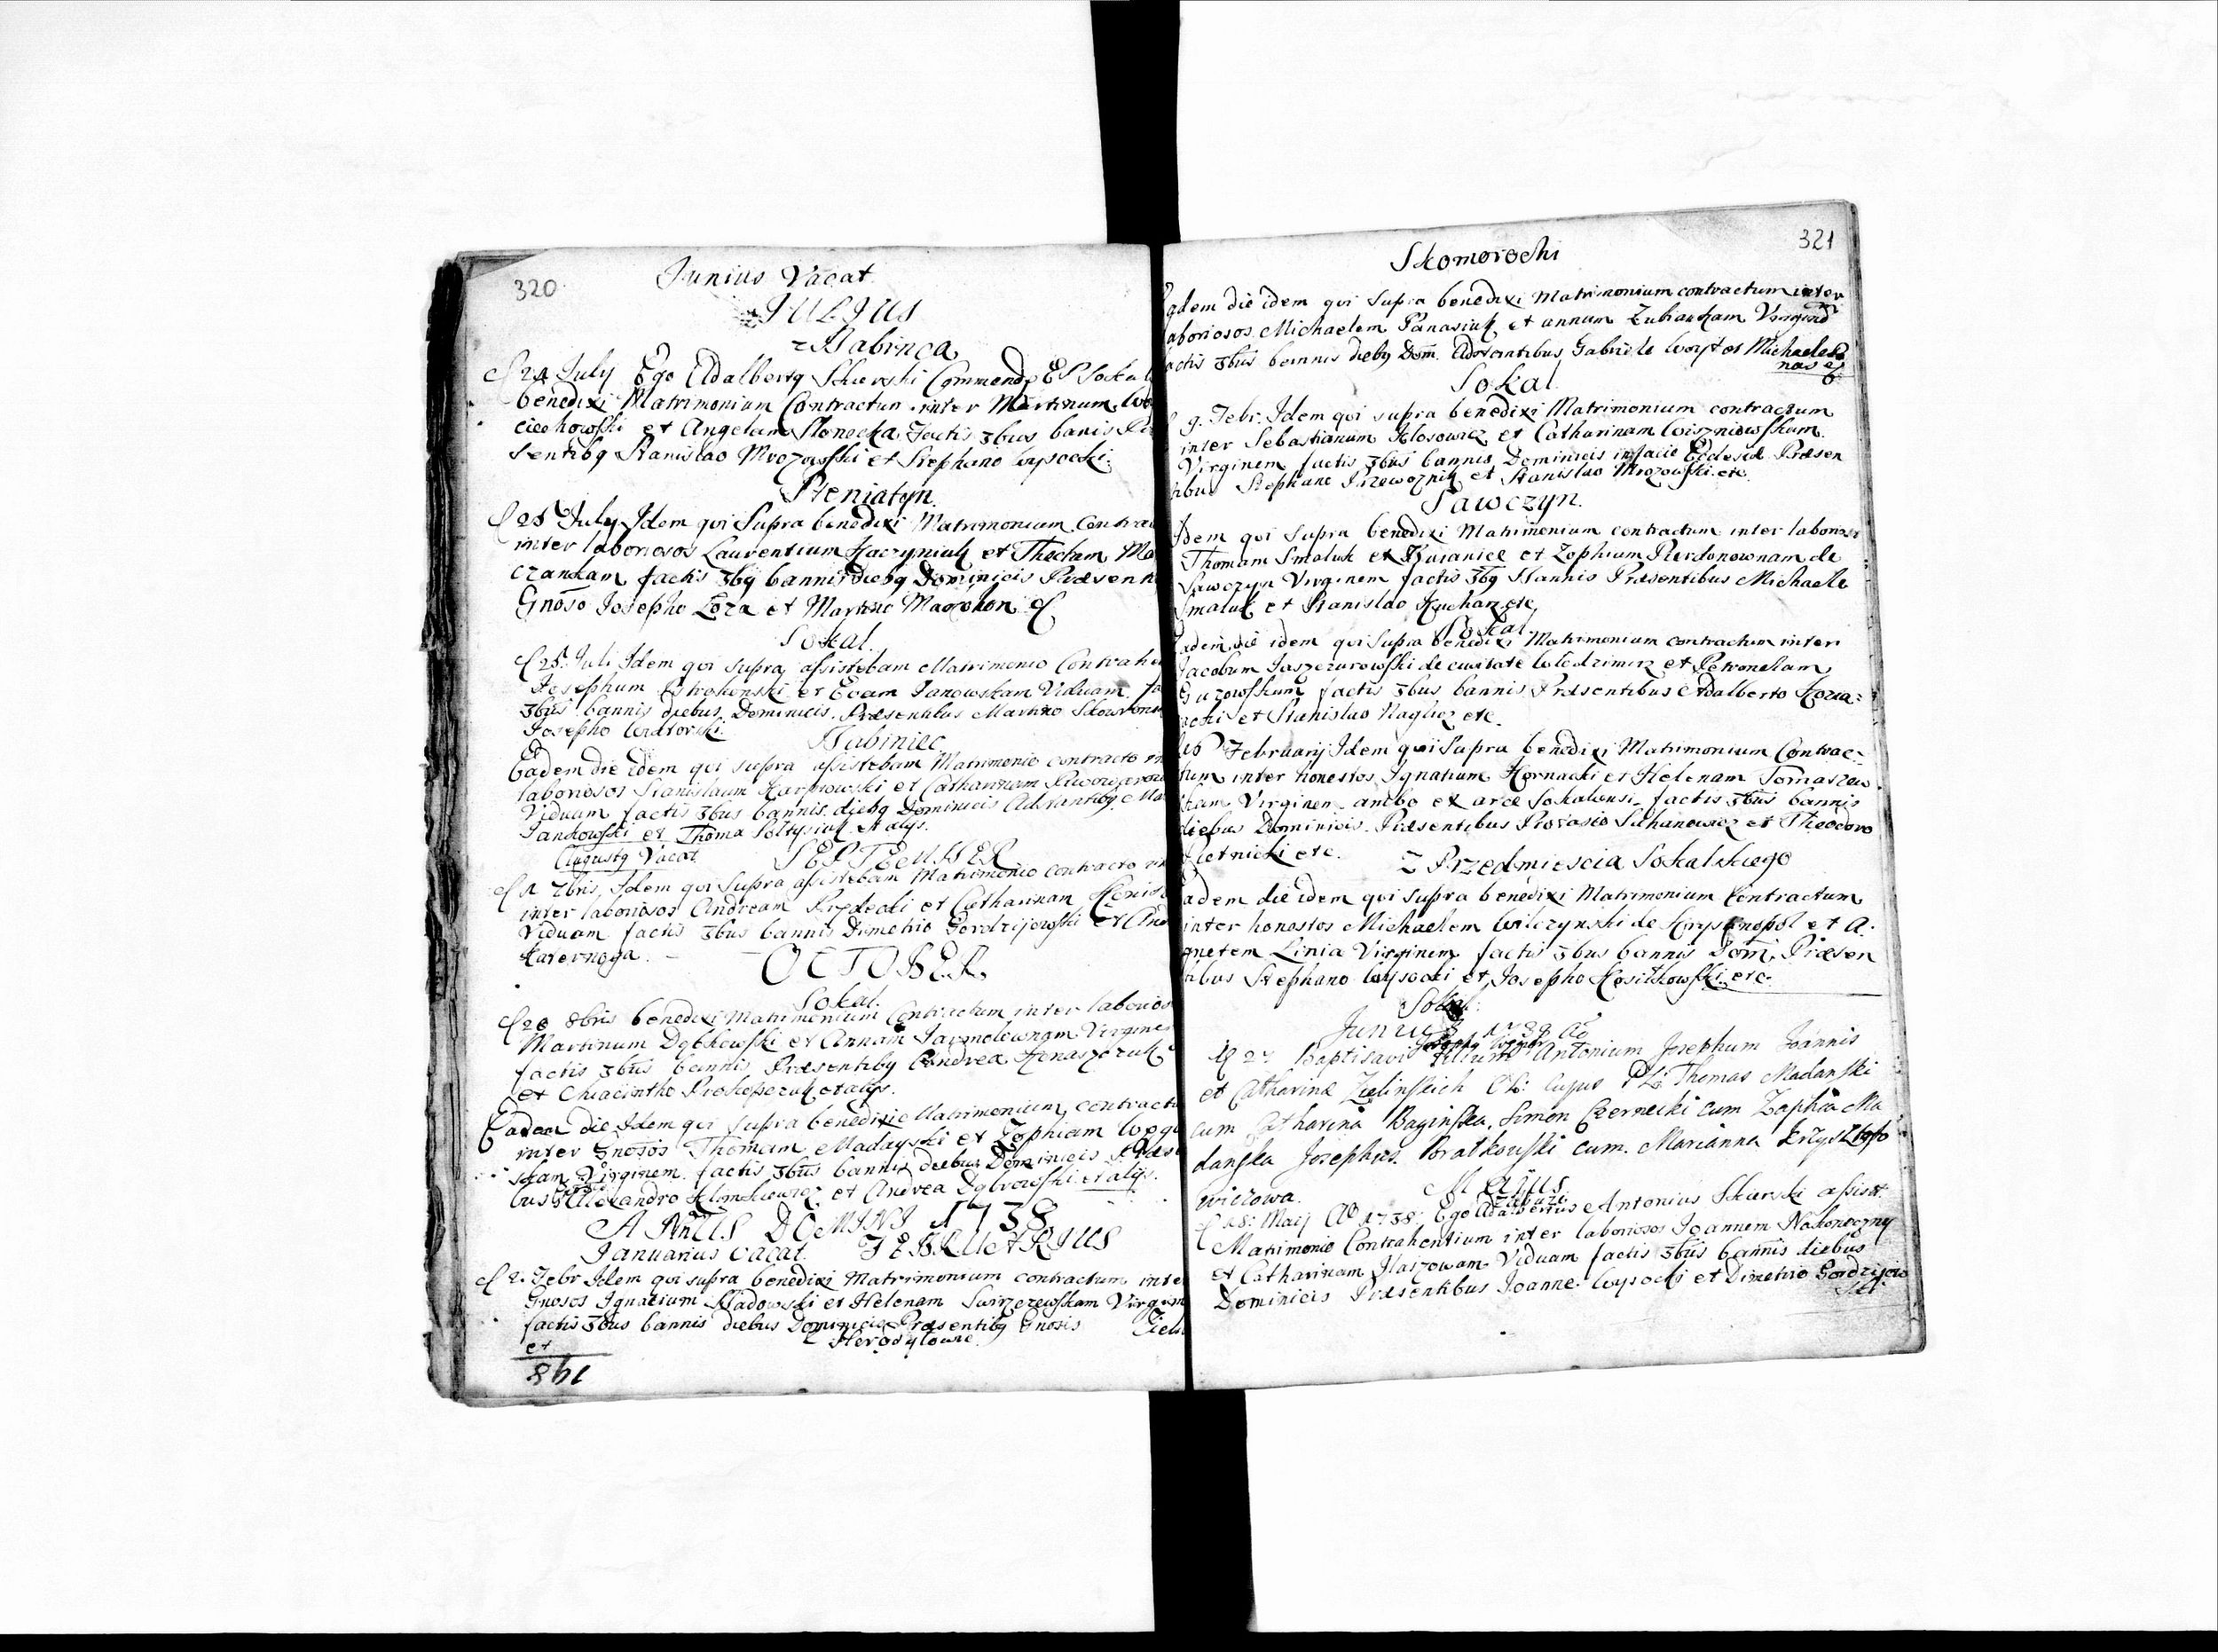 320.
Junius Vacat.
JULJUS
z Babinca
24 July Ego Adalbertq Skurski Commend. E P Sokal
benedixi Matrimonium Contractum inter Martinum Wo
ciechowski et Angelam Słonecka factis 3bus banis Præ
sentibq Stanislao Mrozowski et Stephano Wysocki.
Steniatyn.
25 July Idem qui Supra benedixi Matrimonium Contrac
inter laboriosos Laurentium Kaczyniuk et Theclam Ma
czankam factis 3bq bannis diebq Dominicis Præsenti
Gnoso Josepho Łoza et Martino Magohon
Sokal.
25. Juli Idem qui supra assistebam Matrimonio Contrahen
Josephum et Evam Janowskam Viduam fa
3bus bannis diebus Dominicis. Præsentibus Martino Skowron
Josepho
Babiniec
Eadem die idem qui supra assistebam Matrimonio contracto in
laboriosos Stanislaum Karpowski et Catharinam
Viduam factis 3bus bannis diebq Dominicis Adstantibq Ma
Jankowski et Thoma Soltysiuk et alys.
Augustq Vacat. SEPTEMBER
1 7bris. Idem qui Supra assistebam Matrimonio contracto in
inter laboriosos Andream et Catharinam
Viduam factis 3bus bannis Dimetrio Gordzijewski et And
Katernoga.
OCTOBER.
Sokal.
20 8bris benedixi Matrimonium Contractum inter laborios
Martinum Dąbkowski et Annam Jarmolewnam Virginem
factis 3bus bannis Præsentibq Andrea Honaszczuk
et Chiacintho Prokopczuk et alys.
Eadem die Idem qui supra benedixi Matrimonium contractu
inter Gnosos Thomam Madayski et Zophiam Węg
skam Virginem factis 3bus bannis diebus Dominicis Præs
bus Alexandro Klimkiewicz et Andrea Dąbrowski et alys.
ANNUS DOMINI 1738
Januarius vacat. FEBRUARIUS
2. Febr Idem qui supra benedixi Matrimonium contractum inte
Gnosos Ignatium Sładowski et Helenam Swirzczewskam Virginem
factis 3bus bannis diebus Dominicis Præsentibq Gnosis
et
148
321
Skomorochi
adem die idem qui Supra benedixi Matrimonium contractum inter
aboriosos Michaelem Panasiuk et annam Zubiankam Virginē
actis 3bus bannis diebq Dom. Adstantibus Gabriele Woyt et Michaele
Sokal.
9. Febr. Idem qui supra benedixi Matrimonium contractum
inter Sebastianum Kłosowicz et Catharinam Wiszniowskam
Virginem factis 3bus bannis Dominicis in facie Ecclesiæ Præsen
tibus Stephano Przewoznik et Stanislao Mrozowski etc.
Sawczyn.
Idem qui Supra benedixi Matrimonium contractum inter laborios
Thomam Smaluk ex et Zophiam de
Sawczyn Virginem factis 3bq Bannis Præsentibus Michaele
Smaluk et Stanislao Kucharz etc.
Sokal.
adem die idem qui Supra benedixi Matrimonium contractum inter
Jacobum Jaszczurowski de civitate Wlodzimirz et Petronelam
Guzowskam factis 3bus bannis Præsentibus Adalberto Kozia=
acki et Stanislao Naglicz etc.
16 February Idem qui Supra benedixi Matrimonium Contrac-
tum inter honestos Ignatium Kornacki et Helenam Tomaszew
skam Virginem ambo ex arce Sokalensi factis 3bus bannis
diebus Dominicis. Præsentibus Protasio Suchanowicz et Theodoro
Pletnicki etc. z Przedmiescia Sokalskiego
adem die idem qui supra benedixi Matrimonium Contractum
inter honestos Michaelem Wilczynski de Krystynopol et A.
gnetem Linia Virginem factis 3bus bannis Dom. Præsen
tibus Stephano Wysocki et Josepho Kositkowski etc.
Sokal.
Junius 1739 Ao
27 Baptisavi filium Antonium Josephum Joannis
et Catharinæ Zielinskich cujus Thomas Madanski
cum Catharina Baginska, Simon Czernecki cum Zophia Ma
danska Josephus Bratkowski cum Marianna Krzysztofo
wiczowa.
Majus
zabuze
18. Maij Ao 1738. Ego Adalbertus Antonius Skurski assist.
Matrimonio Contrahentium inter laboriosos Joannem Nakoneczny
et Catharinam Jlaszowam Viduam factis 3bus bannis diebus
Dominicis Præsentibus Joanne Wysocki et Dimetrio Gordzijew
ski